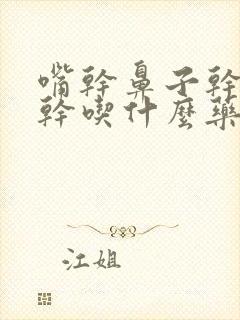 嘴幹鼻子幹
幹喫什麼藥
江姐